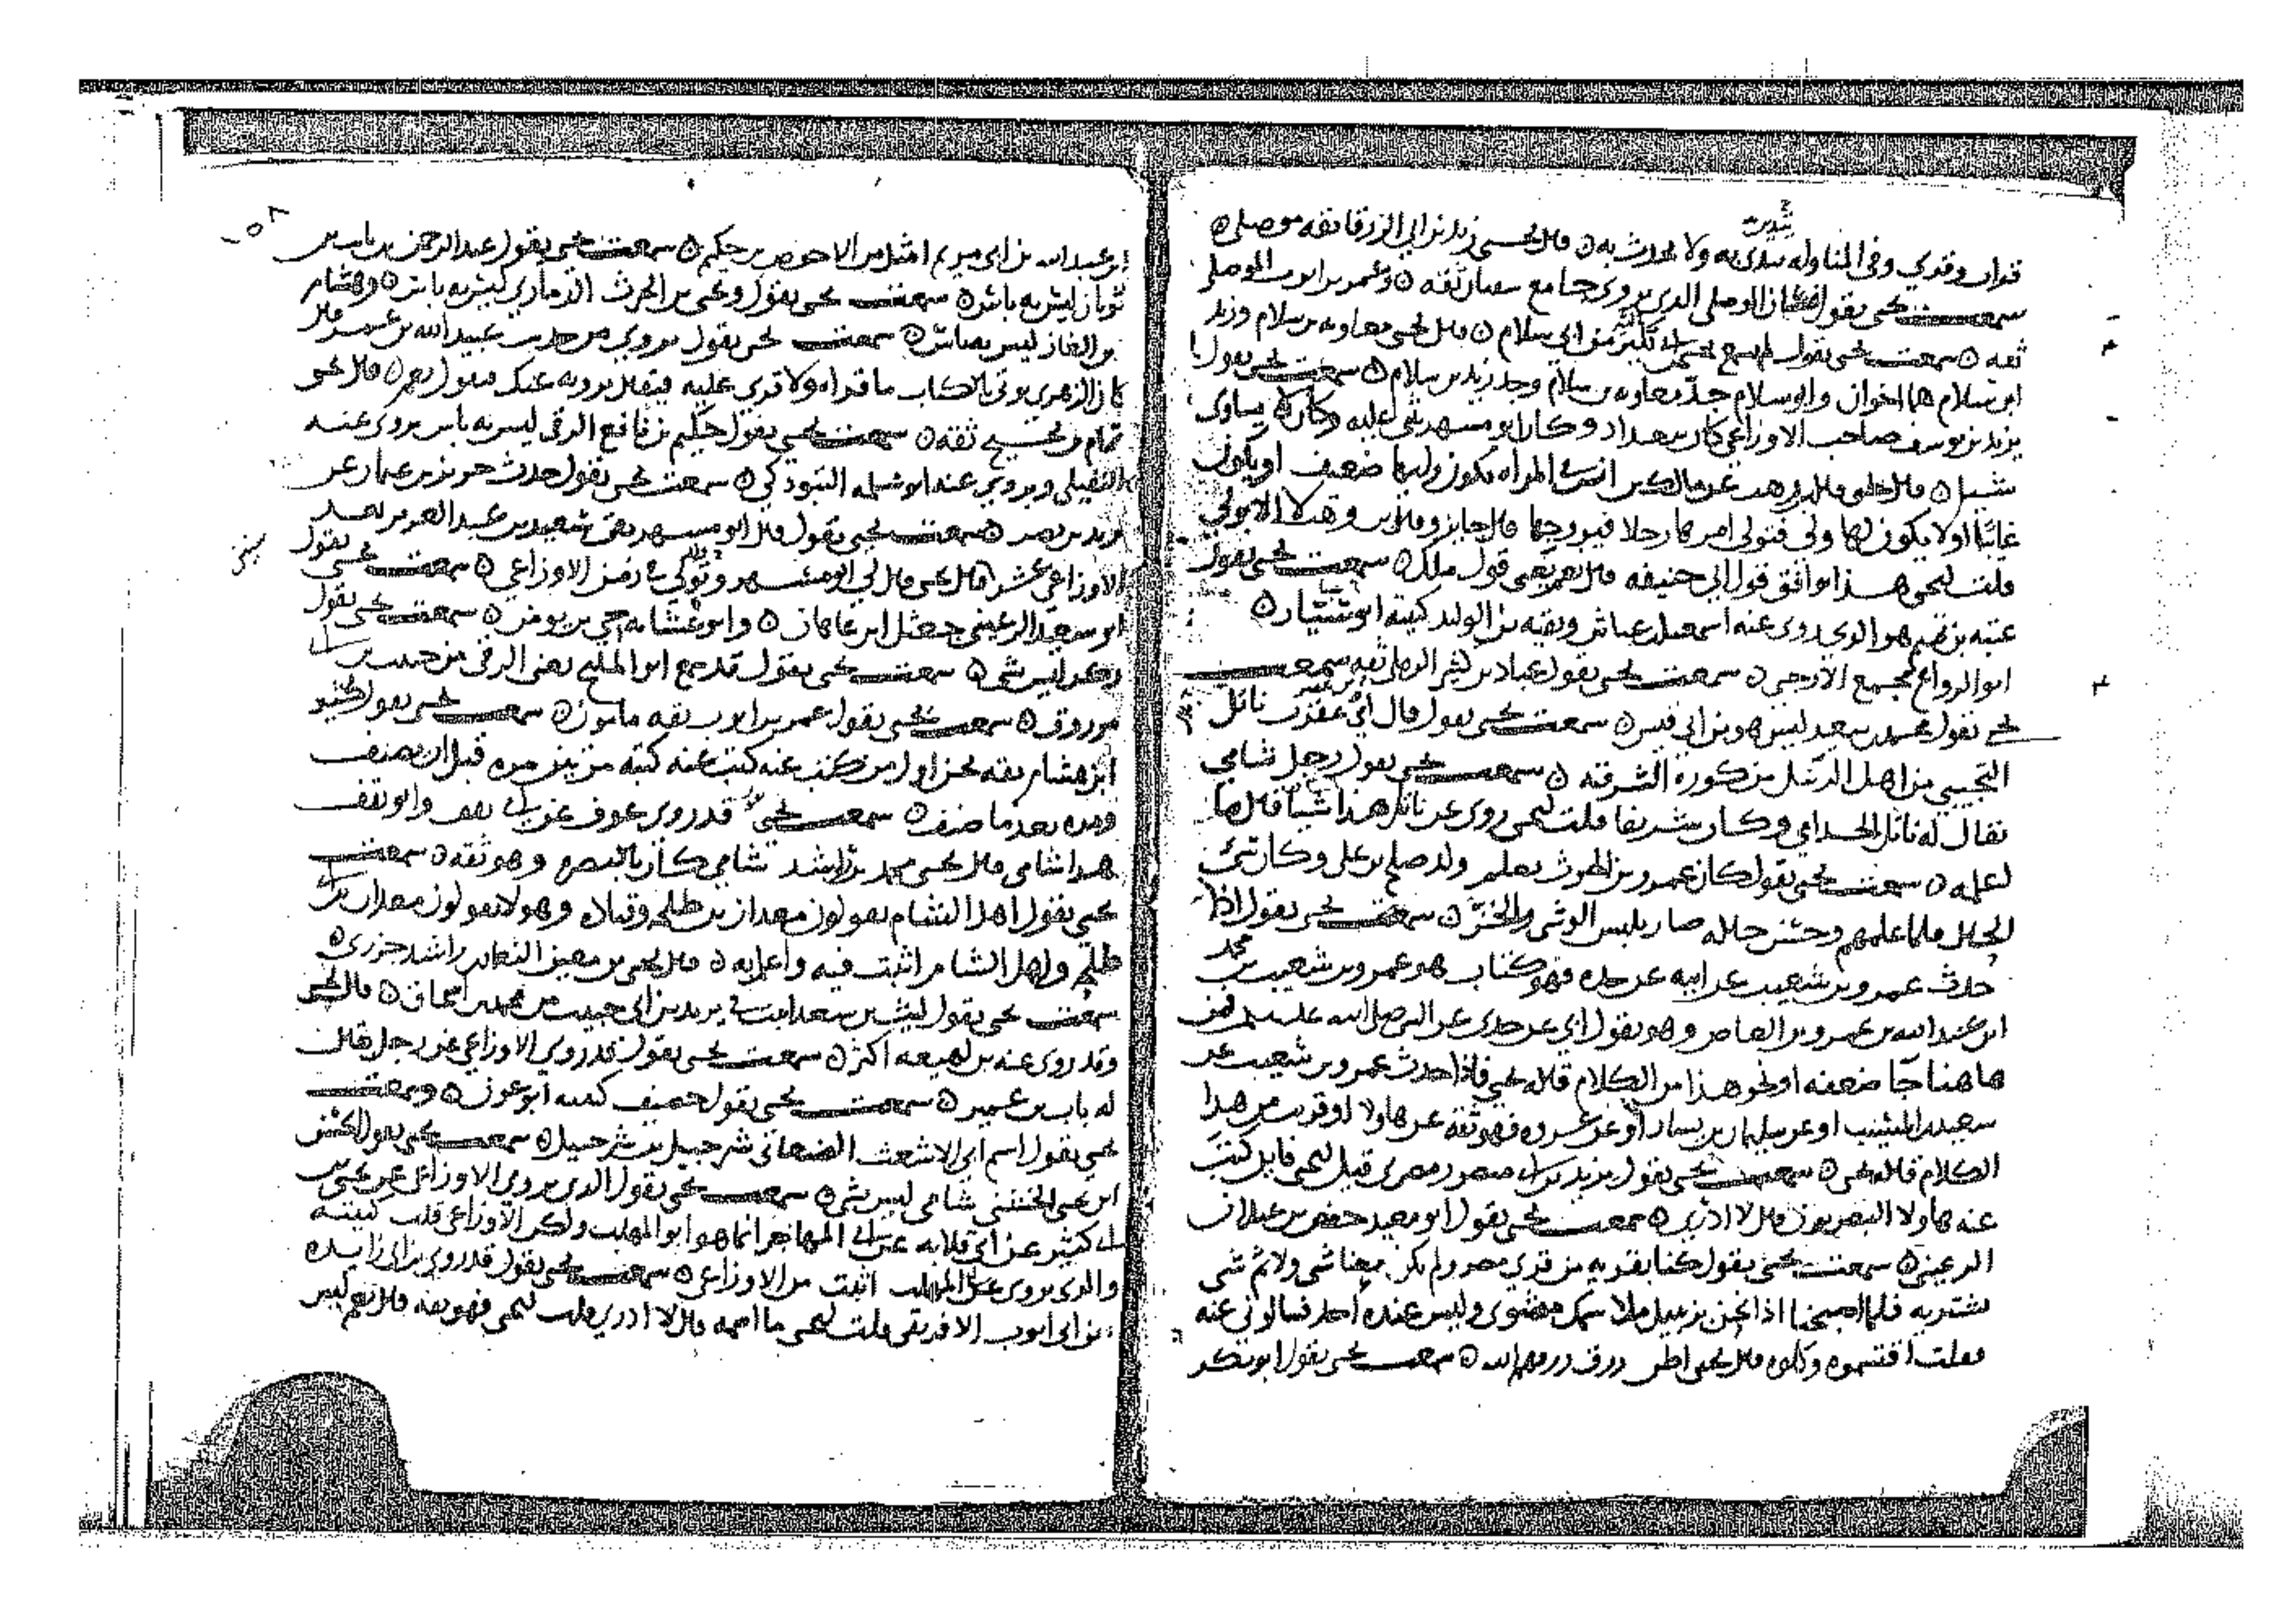 قراه وقري وفي المناوله يتدين به ولا يحدث به ٥ قال يحيى زيد بن ابي الزرقا ثقه موصلي ٥
سمعت يحيى يقول الموصلي الذي يروي جامع سفيان ثقه ٥ وعمر بن ايوب الموصلي
ثقه ٥ سمعت يحيى يقول لم يسمع يحيى بن ابي كثير من ابي سلام ٥ قال يحيى معاويه بن سلام وزيد
ابن سلام هما اخوان وابو سلام جد معاويه بن سلام وجد زيد بن سلام ٥ سمعت يحيى يقول
يزيد بن يوسف صاحب الاوزاعي كان ببغداد وكان ابو مسهر يثني عليه وكان لا يساوي
شيئا ٥ قال يحيى قال وهب عن مالك بن انس في المراه يكون وليها ضعيف او يكون
غائبا او لا يكون لها ولي فتولي امرها رجلا فيزوجها قال جايز وقال ابن وهب لا الا بولي
قلت ليحيى هذا يوافق قول ابي حنيفه قال نعم يعني قول ملك ٥ سمعت يحيى يقول
عتبه بن تميم هو الذي روى عنه اسمعيل بن عياش وبقيه بن الوليد كنيته ابو سبا ٥
ابو الرواع مجمع الارحبي ٥ سمعت يحيى يقول عباد بن كثير الرملي ثقه سمعت
يحيى يقول محمد بن سعيد ليس هو بن ابي قيس ٥ سمعت يحيى يقول قال ابي عقرب نائل
التجيبي من اهل الدثل من كورة الشرقيه ٥ سمعت يحيى يقول رجل شامي
يقال له ناتل الجذامي وكان شريفا قلت ليحيى روى عن ناتل هذا شيا قال ها
لعله ٥ سمعت يحيى يقول كان عمرو بن الحرث يعلم ولد صلح بن علي وكان سيئ
الحال فلما علمهم وحسن حاله صار يلبس الوشي والخز ٥ سمعت يحيى يقول اذا
حدث عمرو بن شعيب عن ابيه عن جده فهو كتاب هو عمرو بن شعيب بن محمد
ابن عبد الله بن عمرو بن العاص وهو يقول ابي عن جدي عن النبي صلى الله عليه وسلم فمن
هاهنا جا ضعفه او نحو هذا من الكلام قاله يحيى فاذا حدث عمرو بن شعيب عن
سعيد بن المسيب او عن سليمان بن يسار او عن عروه فهو ثقه عن هاولا او قريب من هذا
الكلام قاله يحيى ٥ سمعت يحيى يقول يزيد بن ابي منصور مصري قيل ليحيى فاين كتب
عنه هاولا البصريون قال لا ادري ٥ سمعت يحيى يقول ابو معيد حفص بن غيلان
الرعيني ٥ سمعت يحيى يقول كنا بقريه من قرى مصر ولم يكن معنا شي ولا ثم شي
نشتريه فلما اصبحنا اذا نحن بزبيل ملا سمك مشوي وليس عنده احد فسالوني عنه
فقلت اقتسموه وكلوه قال يحيى اظنه رزق رزقهم الله ٥ سمعت يحيى يقول ابو بكر
٥٨
ابن عبد الله بن ابي مريم امثل من الاحوص بن حكيم ٥ سمعت يحيى يقول عبد الرحمن بن ثابت بن
ثوبان ليس به باس ٥ سمعت يحيى يقول ويحيى بن الحرث الذماري ليس به باس ٥ وهشام
بن الغاز ليس به باس ٥ سمعت يحيى يقول يروى من حديث عبيد الله بن عمر قال
كان الزهري يوتى بالكتاب ما قراه ولا قرى عليه فيقال نرويه عنك فيقول نعم ٥ قال يحيى
تمام بن نجيح ثقه ٥ سمعت يحيى يقول حكيم بن نافع الرقي ليس به باس يروى عنه
النفيلي ويروي عنه ابو سلمه التبوذكي ٥ سمعت يحيى يقول حدث حريز بن عثمان عن
سمعت يحيى يقول قال ابو مسهر بقي سعيد بن عبد العزيز بعد
الاوزاعي عشر قال يحيى قال لي ابو مسهر وولدي في زمن الاوزاعي ٥ سمعت يحيى يقول
ابو سعيد الرعيني جعثل ابن عاهان ٥ وابو عشانه حي بن يومن ٥ سمعت يحيى يقول
ليس بشي ٥ سمعت يحيى يقول قد سمع ابو المليح يعني الرقي من حبيب بن ابي
مرزوق ٥ سمعت يحيى يقول عمر بن ايوب ثقه مامون ٥ سمعت يحيى يقول كثير
ابن هشام ثقه نحن اول من كتب عنه كتبت عنه كتبه مرتين مره قبل ان يصنف
ومره بعد ما صنف ٥ سمعت يحيى قد روى عوف عن ابي ثقف وابو ثقف
هذا شامي قال يحيى محمد بن راشد شامي كان بالبصره وهو ثقه ٥ سمعت
يحيى يقول اهل الشام يقولون معدان بن طلحه وقتاده وهولا يقولون معدان بن ابي
طلحه واهل الشام اثبت فيه واعلم به ٥ قال يحيى بن معين النعمان بن راشد جزري ٥
سمعت يحيى يقول ليث بن سعد اثبت في يزيد بن ابي حبيب من محمد بن اسحاق ٥ قال يحيى
وقد روى عنه بن لهيعه اكثر ٥ سمعت يحيى يقول قد روى الاوزاعي عن رجل يقال
له باب بن عمير ٥ سمعت يحيى يقول خصيف كنيته ابو عون ٥ وسمعت
يحيى يقول اسم ابي الاشعث الصنعاني شرحبيل بن شرحبيل ٥ سمعت يحيى يقول الحسن
ابن يحيى الخشني شامي ليس بشي ٥ سمعت يحيى يقول الذي يروي الاوزاعي عن يحيى بن
ابي كثير عن ابي قلابه عن ابي المهاجر انما هو ابو المهلب ولكن الاوزاعي قلب كنيته
والذي يروي عن ابي المهلب اثبت من الاوزاعي ٥ سمعت يحيى يقول قد روى بن ابي زايده
عن ابي ايوب الافريقي قلت ليحيى ما اسمه قال لا ادري قلت ليحيى فهو ثقه قال نعم ليس